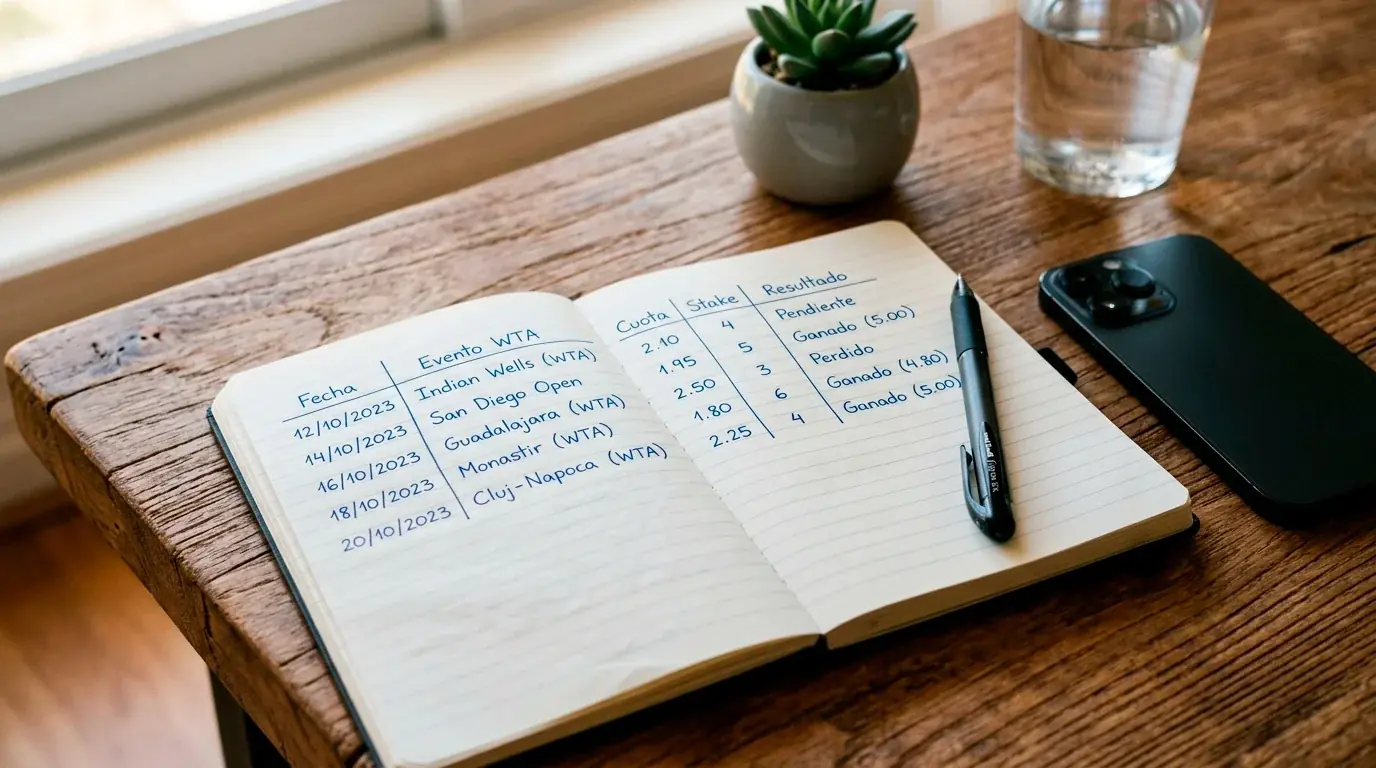 Fecha Evento WTA Cuota Stake Resultado
12/10/2023 Indian Wells (WTA) 2.10 4 Pendiente
14/10/2023 San Diego Open 1.95 5 Ganado (5.00)
16/10/2023 Guadalajara (WTA) 2.50 3 Perdido
18/10/2023 Monastir (WTA) 1.80 6 Ganado (4.80)
20/10/2023 Cluj-Napoca (WTA) 2.25 4 Ganado (5.00)